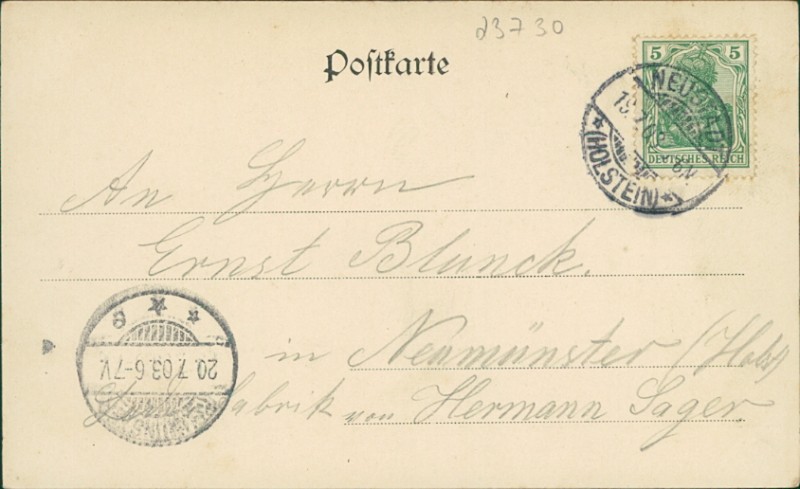 23730
Postkarte
5 5
DEUTSCHES REICH
NEUSTAD
(HOLSTEIN)
An Herrn
Ernst Blunck.
in Neumünster (Holst)
fabrik von Hermann Sager.
20.7.03.6-7V.